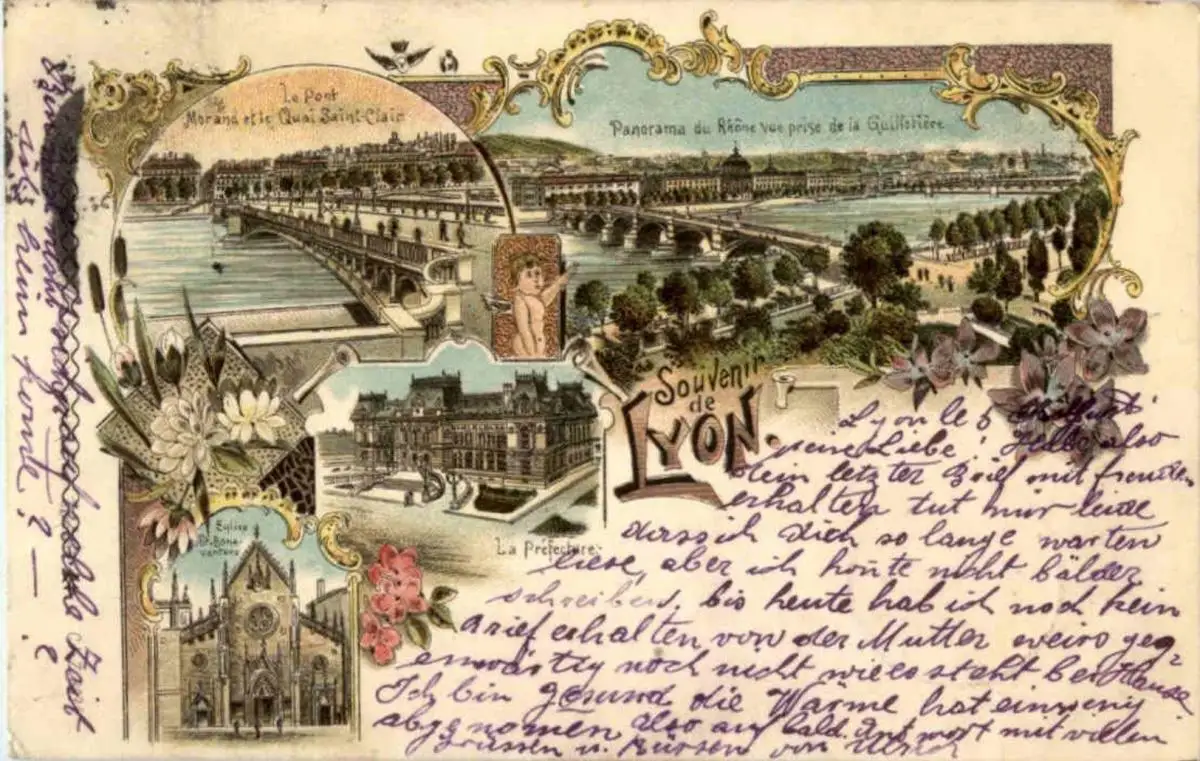 Le Pont
Morand et le Quai Saint-Clair
Panorama du Rhône vue prise de la Guillotière
Souvenir
de
LYON.
La Préfecture.
Eglise
St. Bona-
venture
Lyon le 6
meine Liebe!
Dein letzter Brief mit freuden
erhalten tut mir leide
dass ich dich so lange warten
liese, aber ich konte nicht bälder
schreiben, bis heute hab ich noch kein
Brief erhalten von der Mutter weiss geg-
enwärtig noch nicht wie es steht bei Hause
Ich bin gesund die Wärme hat ein wenig
abgenomen also auf bald. Antwort mit vielen
Grüssen u. Küssen von
Zeit